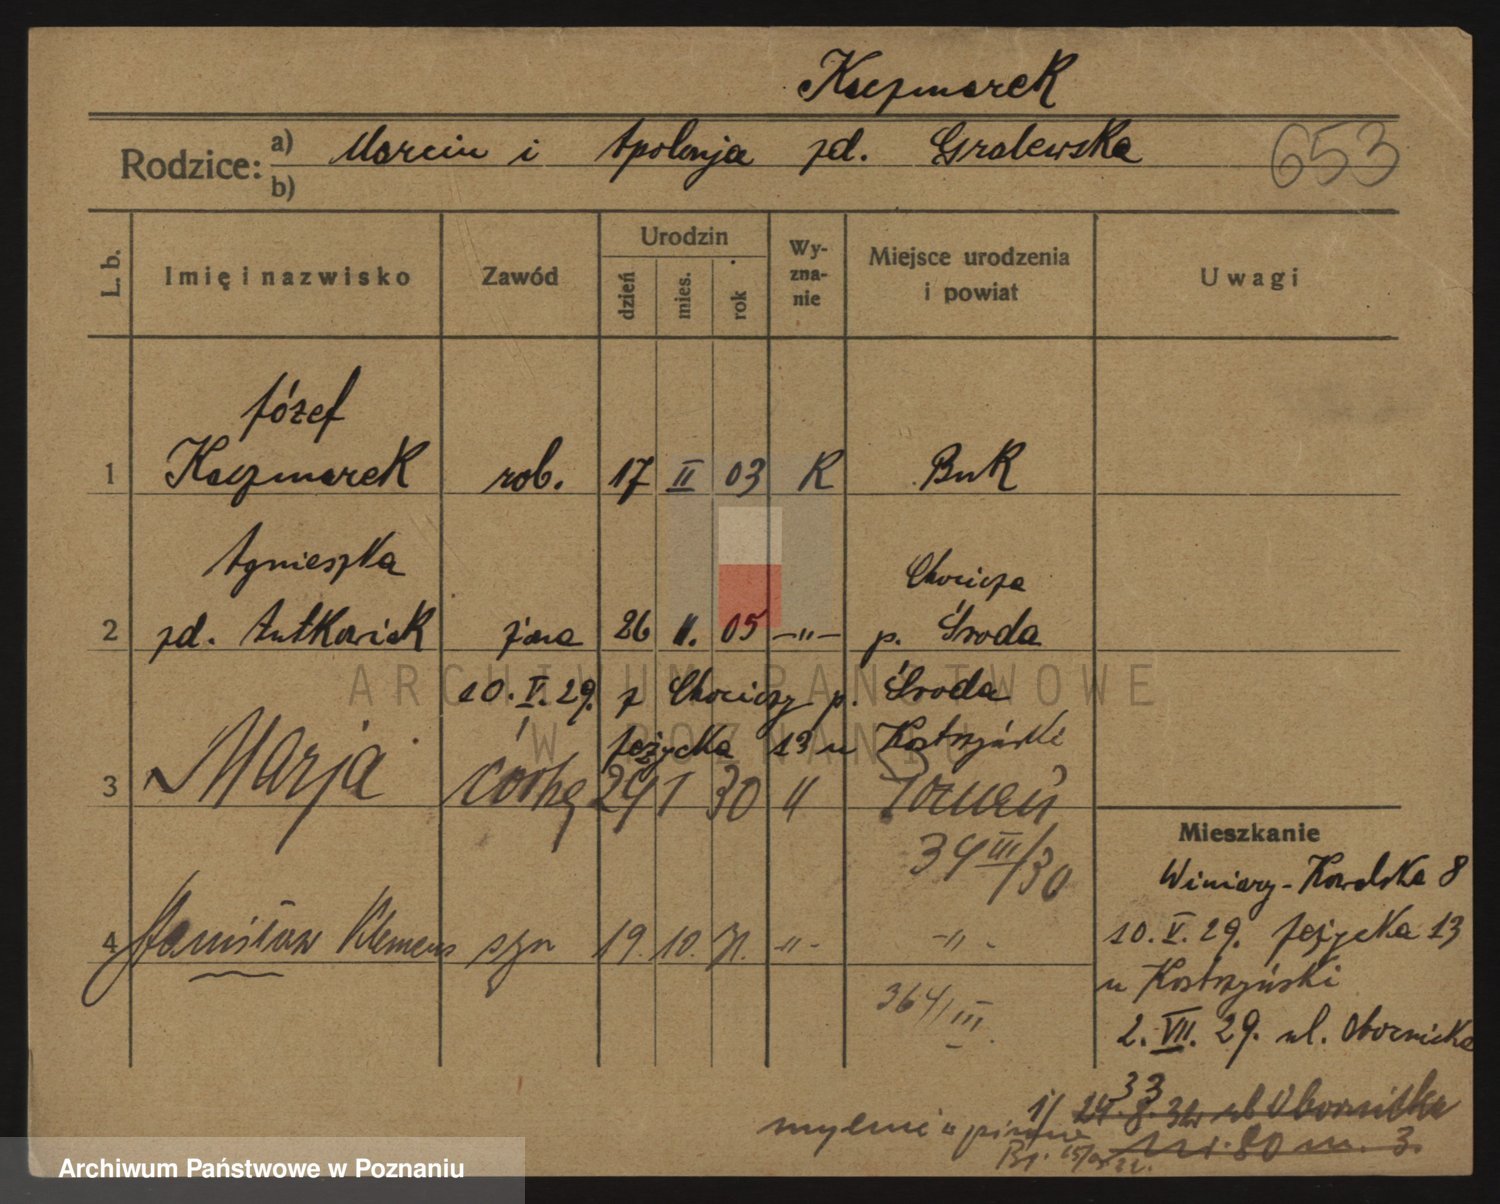 Kaczmarek
Rodzice: a) Marcin i Apolonja zd. Gralewska
b)
653
L. b.
Imię i nazwisko
Zawód
Urodzin
dzień
mies.
rok
Wy-
zna-
nie
Miejsce urodzenia
i powiat
Uwagi
Józef
1 Kaczmarek rob. 17 II 03 R Buk
Agnieszka Chocicza
2 zd. Antkowiak żona 26 II. 05 -"- p. Środa
10. V. 29. z Chociczy p. Środa
Jeżycka 13 u Kostrzyński
3 Marja córka 29 1 30 " Poznań
34 III/30
4 Stanisław Klemens syn 19. 10. 31. -"- -"-
364/III
Mieszkanie
Winiary - Kowalska 8
10. V. 29. Jeżycka 13
u Kostrzyński
2. VII. 29. ul. Obornicka
33
1/ 24. 8. ul Obornicka
mylnie
Nr. 80 m. 3.
ARCHIWUM PAŃSTWOWE
W POZNANIU
Archiwum Państwowe w Poznaniu